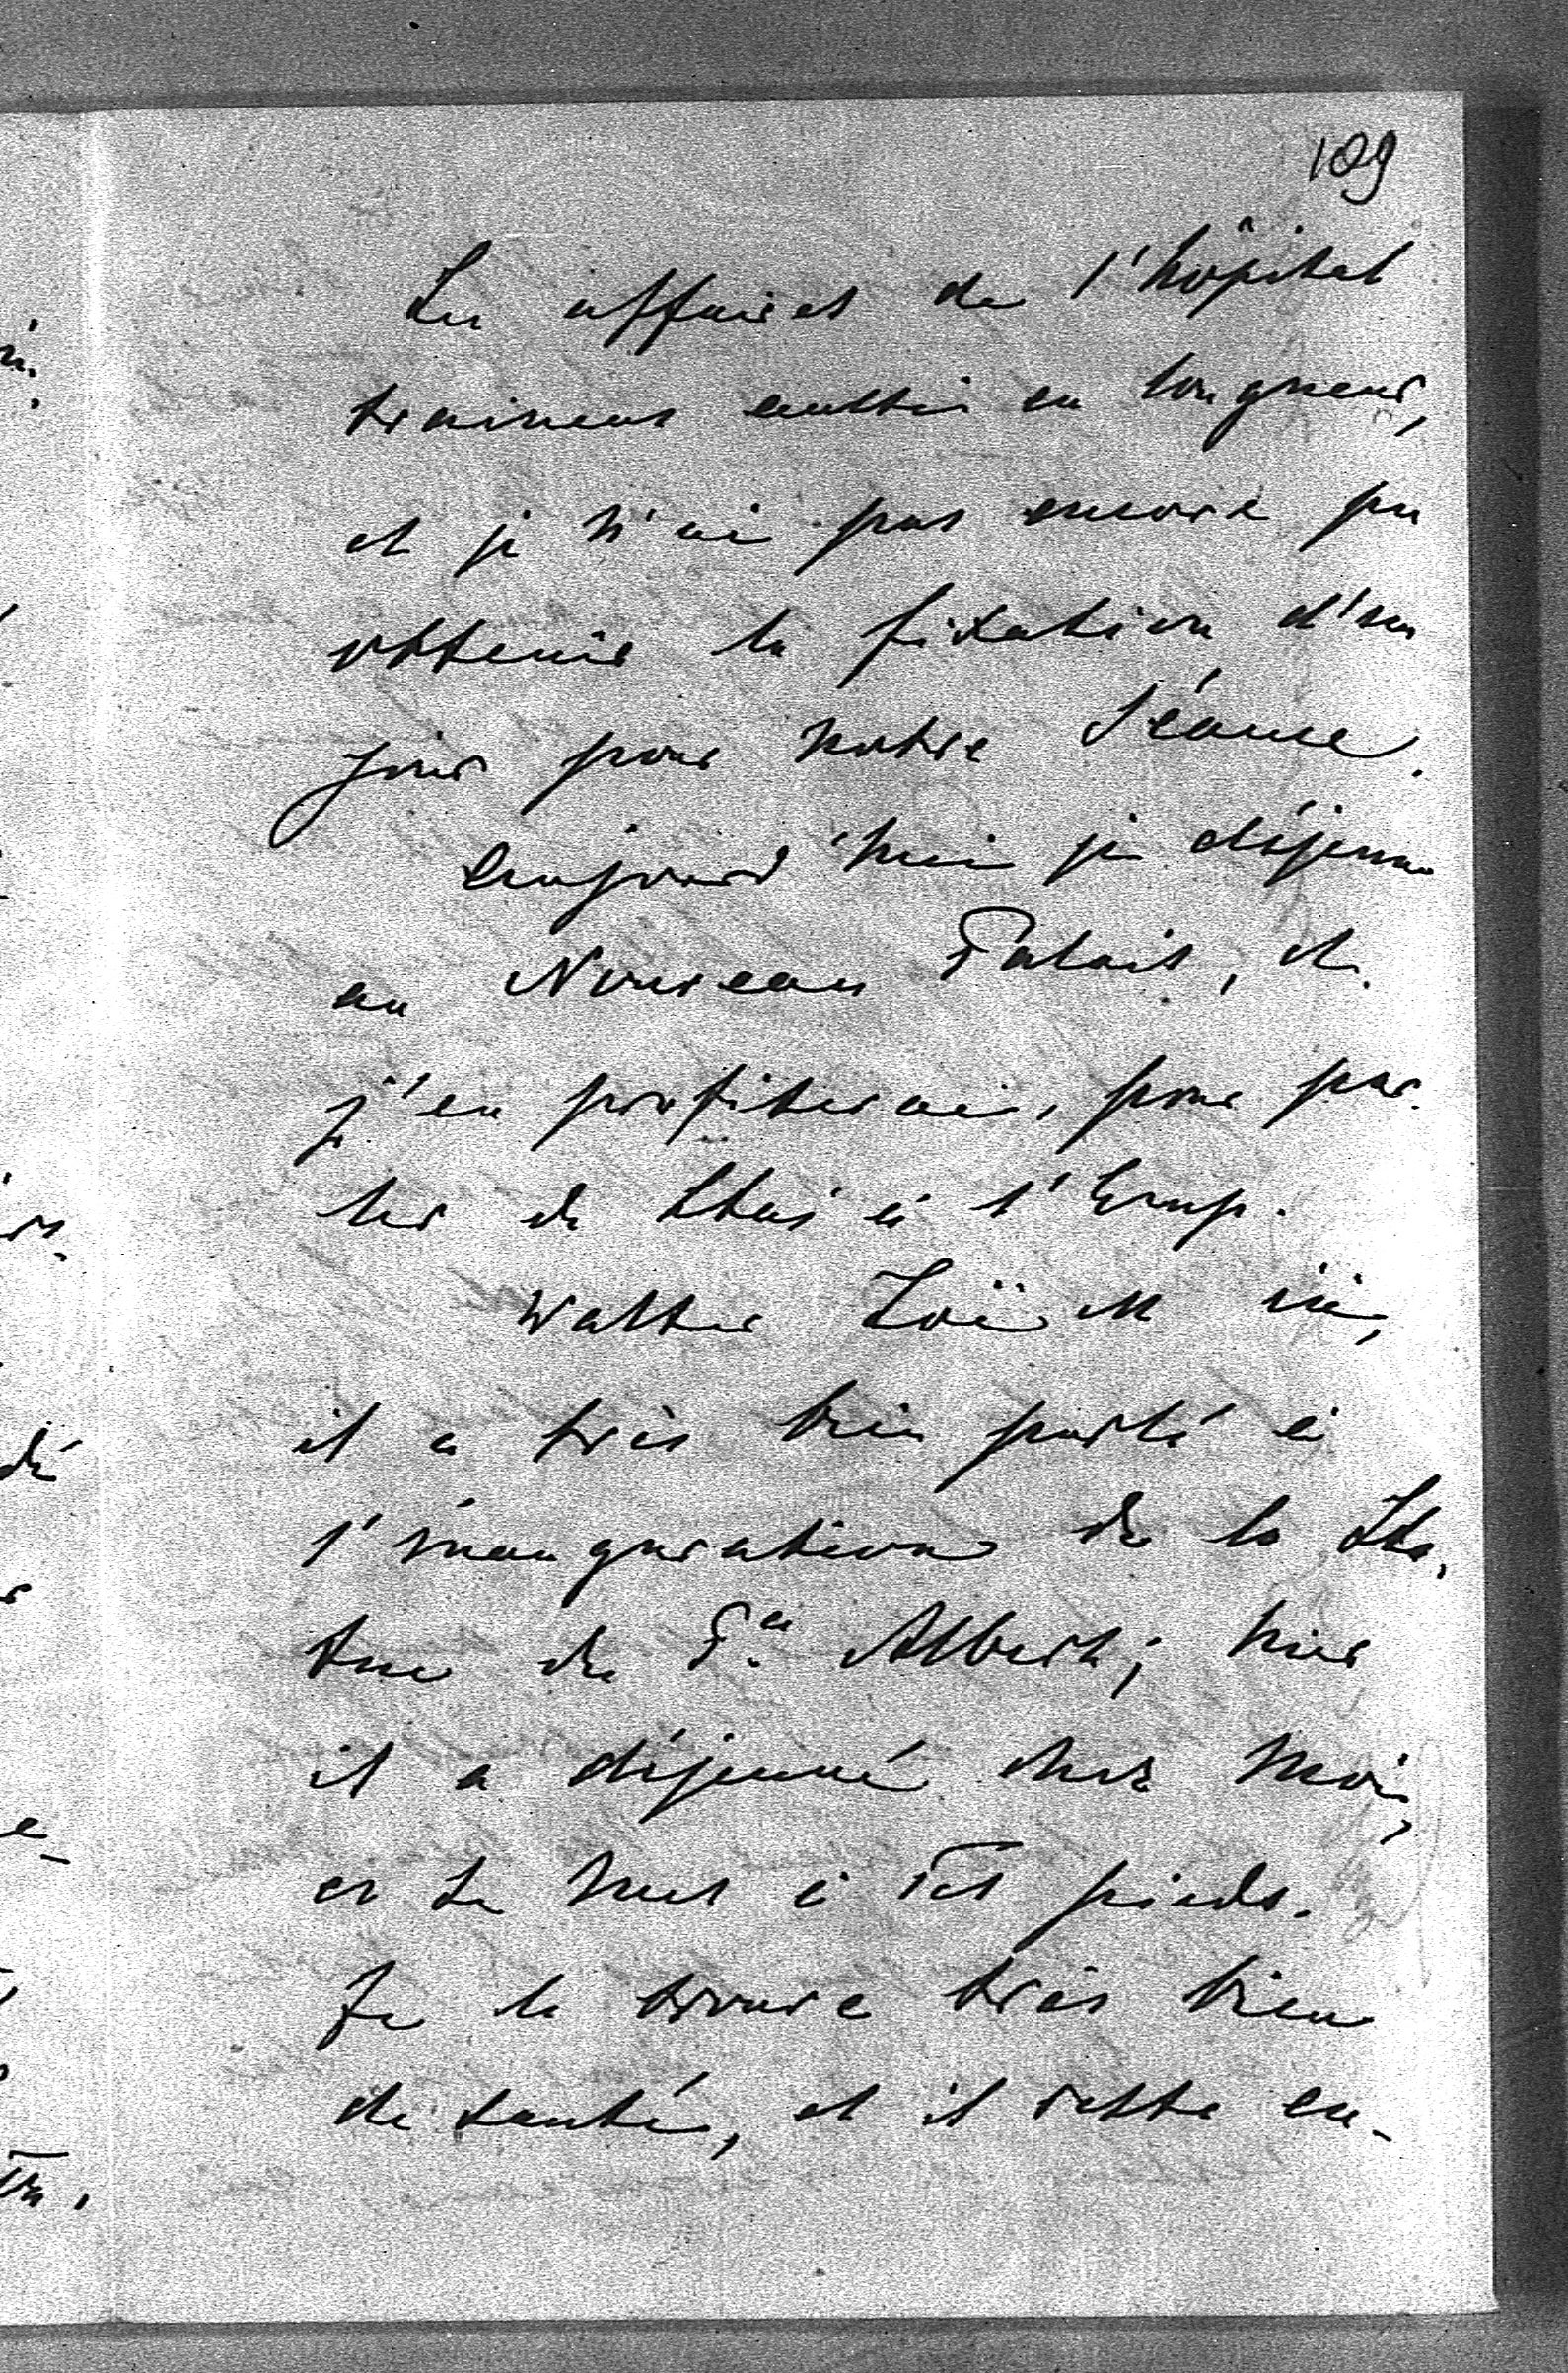 109
Les affaires de l'hôpital
trainent aussi en longueur,
et je n'ai pas encore pu
obtenir la fixation d'un
jour pour notre Séance.
Aujourd'hui je déjeune
au Nouveau Palais, et
j'en profiterai, pour par-
ler de à l'Emp.
Walther Loë est ici,
il a très bien parlé à
l'inauguration de la Sta-
tue du Pce Albert; hier
il a déjeuné chez moi,
et se met à Tes pieds.
Je le trouve très bien
de santé, et il reste en-